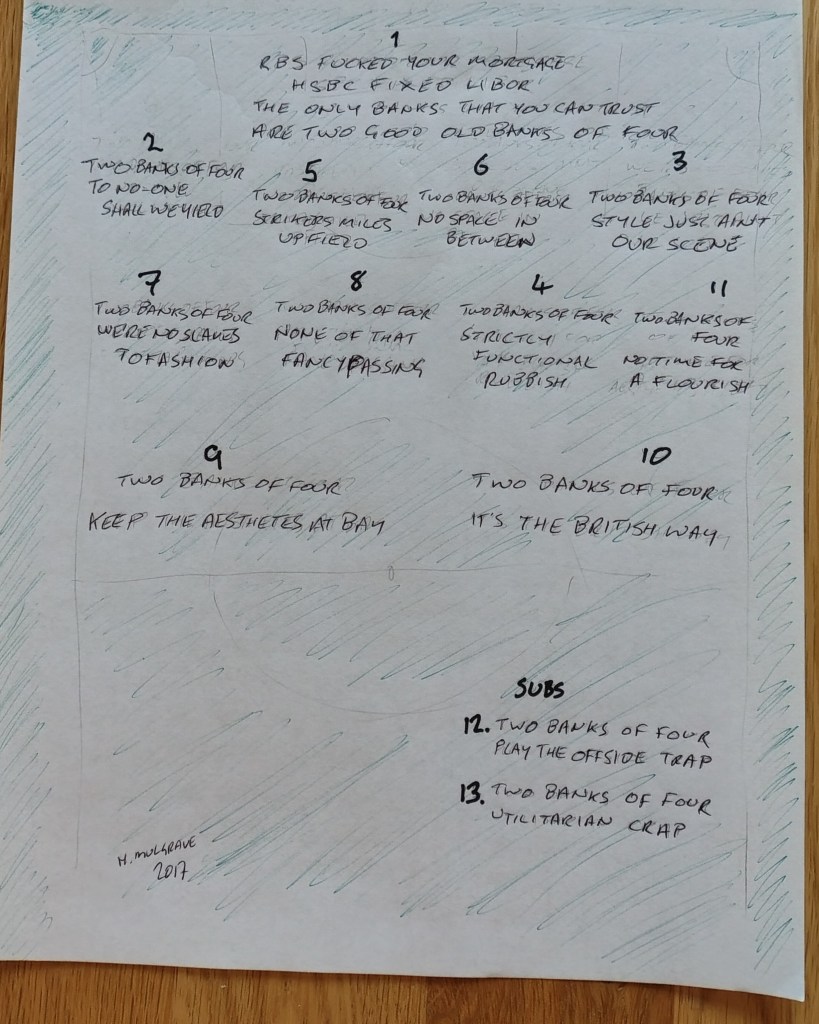 1
RBS FUCKED YOUR MORTGAGE
HSBC FIXED LIBOR
THE ONLY BANKS THAT YOU CAN TRUST
ARE TWO GOOD OLD BANKS OF FOUR
2
TWO BANKS OF FOUR
TO NO-ONE
SHALL WE YIELD
5
TWO BANKS OF FOUR
STRIKERS MILES
UPFIELD
6
TWO BANKS OF FOUR
NO SPACE IN
BETWEEN
3
TWO BANKS OF FOUR
STYLE JUST AIN'T
OUR SCENE
7
TWO BANKS OF FOUR
WERE NO SLAVES
TO FASHION
8
TWO BANKS OF FOUR
NONE OF THAT
FANCY PASSING
4
TWO BANKS OF FOUR
STRICTLY
FUNCTIONAL
RUBBISH
11
TWO BANKS OF
FOUR
NO TIME FOR
A FLOURISH
9
TWO BANKS OF FOUR
KEEP THE AESTHETES AT BAY
10
TWO BANKS OF FOUR
IT'S THE BRITISH WAY
SUBS
12. TWO BANKS OF FOUR
PLAY THE OFFSIDE TRAP
13. TWO BANKS OF FOUR
UTILITARIAN CRAP
H. MULGRAVE
2017